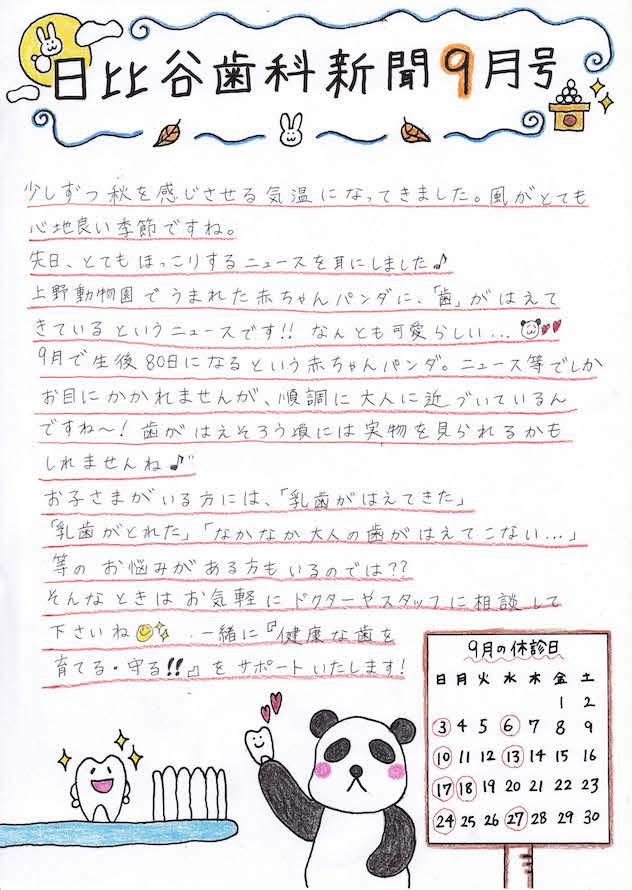 日比谷歯科新聞9月号
少しずつ秋を感じさせる気温になってきました。風がとても
心地良い季節ですね。
先日、とてもほっこりするニュースを耳にしました♪
上野動物園でうまれた赤ちゃんパンダに、「歯」がはえて
きているというニュースです!! なんとも可愛らしい…
9月で生後80日になるという赤ちゃんパンダ。ニュース等でしか
お目にかかれませんが、順調に大人に近づいているん
ですね～！歯がはえそろう頃には実物を見られるかも
しれませんね♪"
お子さまがいる方には、「乳歯がはえてきた」
「乳歯がとれた」「なかなか大人の歯がはえてこない…」
等のお悩みがある方もいるのでは??
そんなときはお気軽にドクターやスタッフに相談して
下さいね 一緒に『健康な歯を
育てる・守る!!』をサポートいたします!
9月の休診日
日 月 火 水 木 金 土
1 2
3 4 5 6 7 8 9
10 11 12 13 14 15 16
17 18 19 20 21 22 23
24 25 26 27 28 29 30